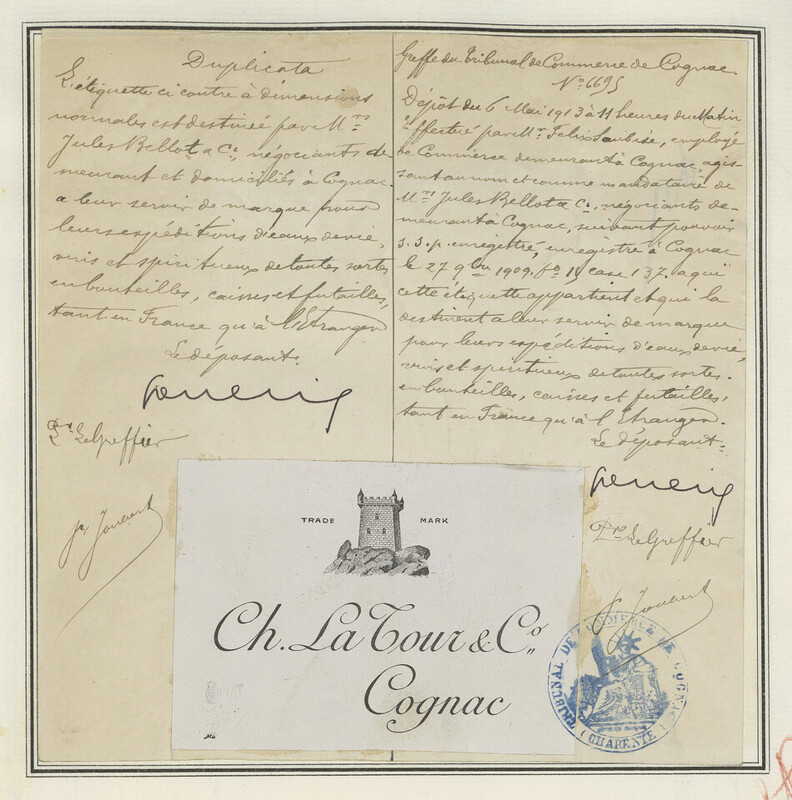 Duplicata
L'étiquette ci contre à dimensions
normales est destinée par M.rs
Jules Bellot & Cie, négociants de-
meurant et domiciliés à Cognac
a leur servir de marque pour
leurs expéditions d'eaux de vie,
vins et spiritueux de toutes sortes
en bouteilles, caisses et futailles,
tant en France qu'à l'Etranger
Le déposant.
Le Greffier
Greffe du Tribunal de Commerce de Cognac
No 6695
Dépôt du 6 Mai 1913 à 11 heures du Matin
effectué par Mr Felix Saubise, employé
de Commerce demeurant à Cognac, agis-
sant au nom et comme mandataire de
M.rs Jules Bellot & Cie, négociants de-
meurant à Cognac, suivant pouvoir
s.s.p. enregistré, enregistré à Cognac
le 27 9bre 1909, fo 15 case 137, a qui
cette étiquette appartient et qui la
destinent a leur servir de marque
pour leurs expéditions d'eaux de vie,
vins et spiritueux de toutes sortes.
en bouteilles, caisses et futailles,
tant en France qu'à l'Etranger.
Le déposant.
Le Greffier
TRADE MARK
Ch. La Tour & Co.
Cognac
TRIBUNAL DE COMMERCE DE COGNAC
(CHARENTE)